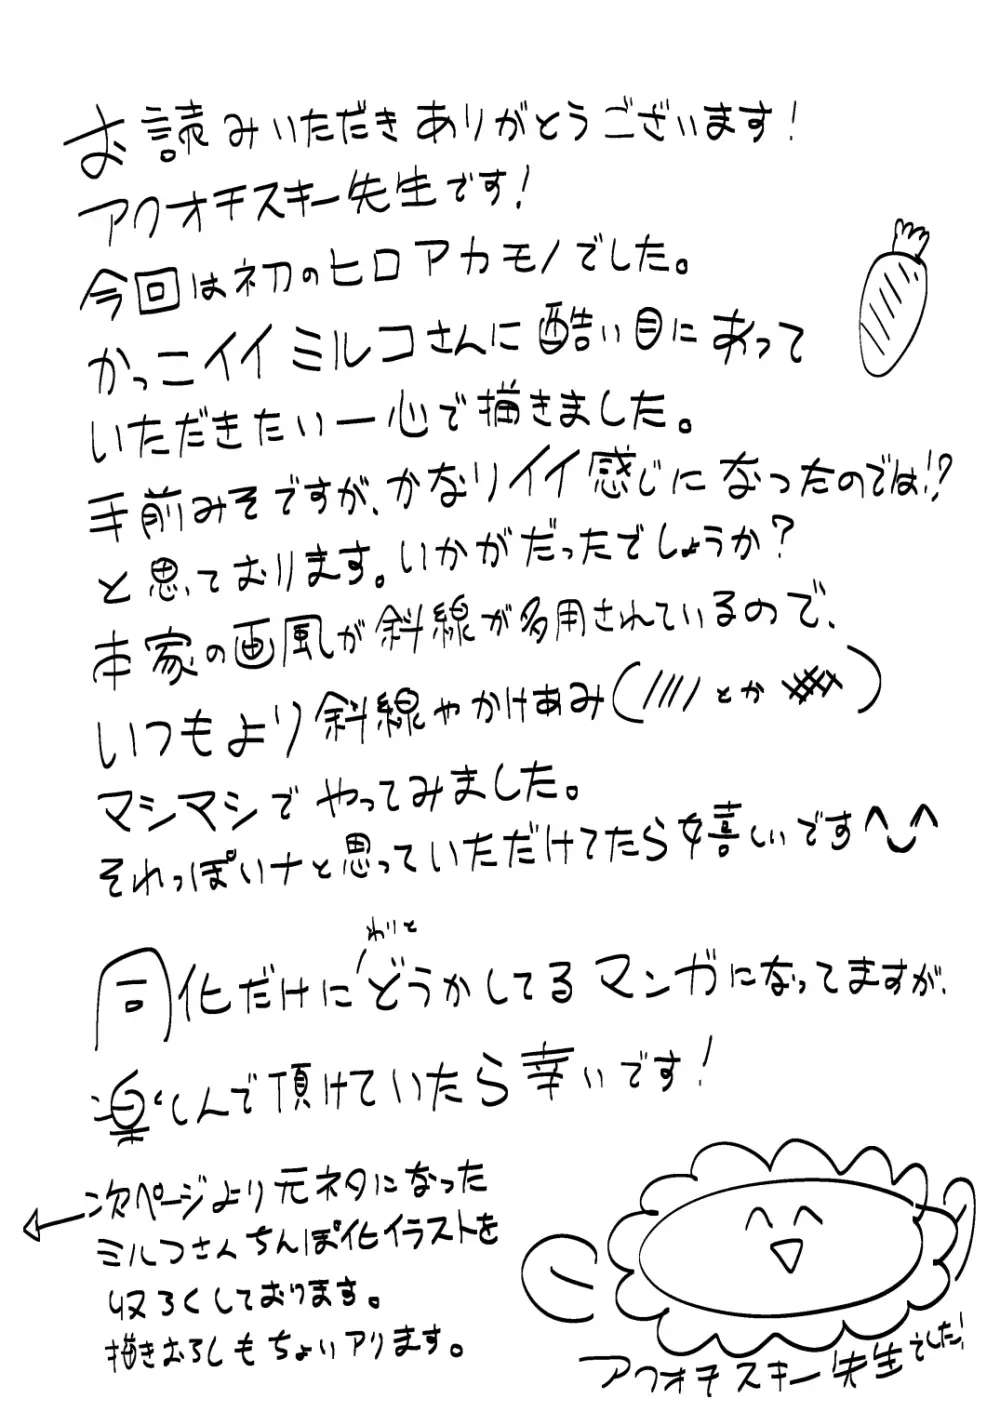 お読みいただきありがとうございます!
アクオチスキー先生です!
今回は初のヒロアカモノでした。
かっこイイミルコさんに酷い目にあって
いただきたい一心で描きました。
手前みそですが、かなりイイ感じになったのでは!?
と思っております。いかがだったでしょうか?
本家の画風が斜線が多用されているので、
いつもより斜線やかけあみ(////とか )
マシマシでやってみました。
それっぽいナと思っていただけてたら嬉しいです^‿^
わりと
同化だけにどうかしてるマンガになってますが、
楽しんで頂けていたら幸いです!
次ページより元ネタになった
ミルコさんちんぽ化イラストを
収ろくしております。
描きおろしもちょいアリます。
アクオチスキー先生でした!